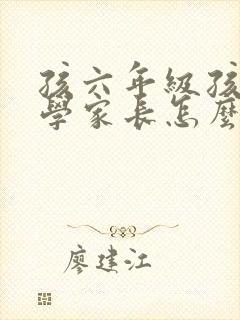 孩六年級孩
學家長怎麼
廖建江